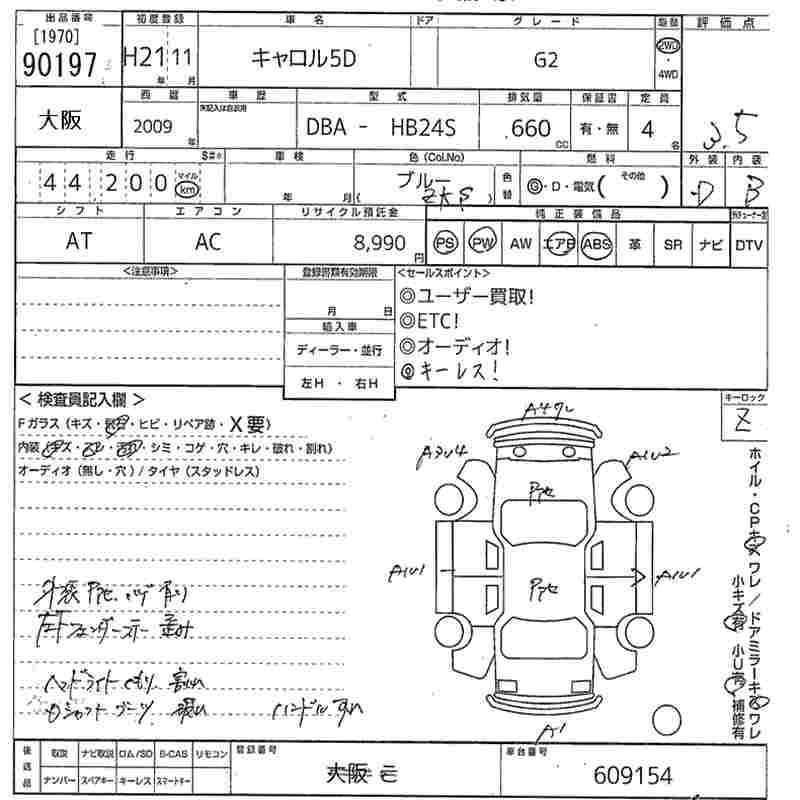 出品番号 初度登録 車名 ドア グレード 駆動 評価点
[1970]
90197 H21 11 キャロル5D G2 2WD・4WD
年 月
大阪 西暦 車歴 型式 排気量 保証書 定員 3.5
未記入は自家用
2009年 DBA - HB24S .660CC 有・無 4名
走行 S#⇔ 車検 色(Col.No) 燃料 外装 内装
44200 マイル km 年 月 ブルー 色替 G・D・電気(その他) D B
(ZKP)
シフト エアコン リサイクル預託金 純正装備品
AT AC 8,990円 PS PW AW エアB ABS 革 SR ナビ DTV
<注意事項> 登録書類有効期限 <セールスポイント>
月 日 ◎ユーザー買取!
輸入車 ◎ETC!
ディーラー・並行 ◎オーディオ!
左H・右H ◎キーレス!
<検査員記入欄> キーロック
Fガラス(キズ・飛石・ヒビ・リペア跡・X要) Z
内装(キズ・・・シミ・コゲ・穴・キレ・破れ・割れ)
オーディオ(無し・穴)/タイヤ(スタッドレス)
ホイル・CPキズワレ/ドアミラーキズワレ
小キズ有 小U有 補修有
A3U4 A1U2
A1U1 A1U1
A1
ヘッドライトくもり
ハンドルすれ
後送品 取説 ナビ取説 ロム/SD B-CAS リモコン 登録番号 車台番号
ナンバー スペアキー キーレス スマートキー 大阪 609154